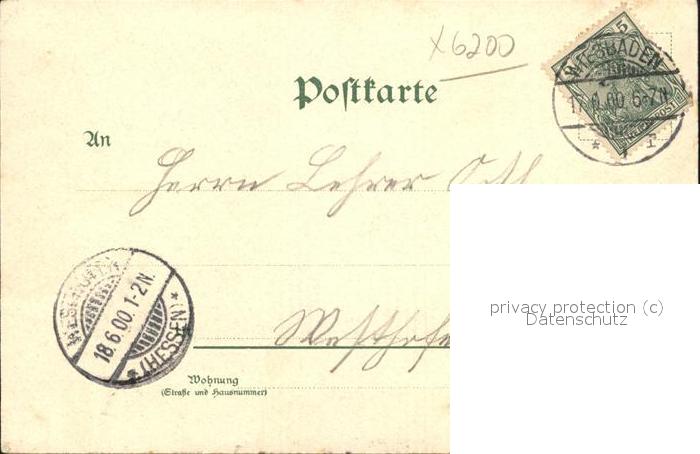 x6200
5
WIESBADEN
17.6.00 6-7N.
* 1 I
Postkarte
An
Herrn Lehrer
privacy protection (c)
Datenschutz
18.6.00.1-2N.
* (HESSEN) *
Westhofen
Wohnung
(Straße und Hausnummer)